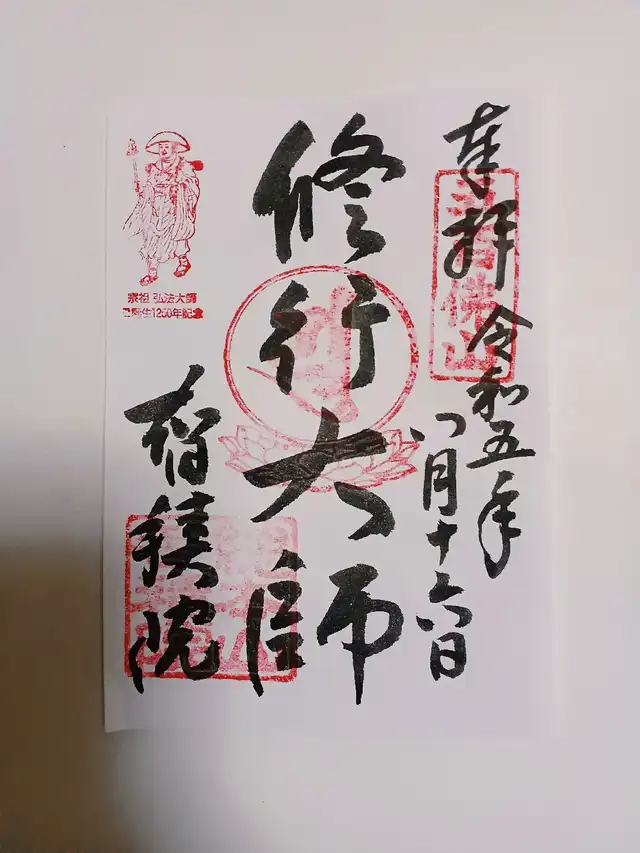 奉拝 令和五年
月十六日
五百佛山
修行大師
宗祖 弘法大師
ご誕生1250年記念
智積院